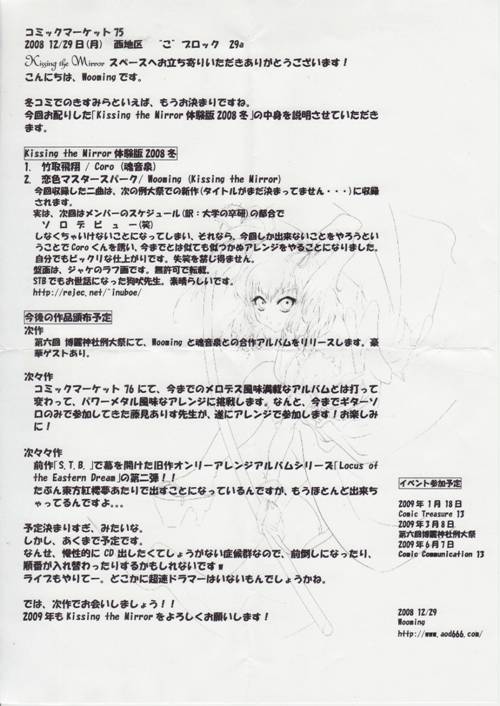 コミックマーケット 75
2008 12/29日(月)　西地区　"こ" ブロック　29a
Kissing the Mirror スペースへお立ち寄りいただきありがとうございます！
こんにちは、Woomingです。
冬コミでのきすみらといえば、もうお決まりですね。
今回お配りした「Kissing the Mirror 体験版 2008 冬」の中身を説明させていただき
ます。
Kissing the Mirror 体験版 2008 冬
1. 竹取飛翔 / Coro (魂音泉)
2. 恋色マスタースパーク/ Wooming (Kissing the Mirror)
今回収録した二曲は、次の例大祭での新作(タイトルがまだ決まってません・・・)に収録
されます。
実は、次回はメンバーのスケジュール(訳：大学の卒研)の都合で
ソロデビュー(笑)
しなくちゃいけないことになってしまい、それなら、今回しか出来ないことをやろうとい
うことで Coro くんを誘い、今までとは似ても似つかぬアレンジをやることになりました。
自分でもビックリな仕上がりです。失笑を禁じ得ません。
盤面は、ジャケのラフ画です。無許可で転載。
STB でもお世話になった狗吠先生。素晴らしいです。
http://rejec.net/~inuboe/
今後の作品頒布予定
次作
第六回 博麗神社例大祭にて、Wooming と魂音泉との合作アルバムをリリースします。豪
華ゲストあり。
次々作
コミックマーケット 76 にて、今までのメロデス風味満載なアルバムとは打って
変わって、パワーメタル風味なアレンジに挑戦します。なんと、今までギターソ
ロのみで参加してきた藤見ありす先生が、遂にアレンジで参加します！お楽しみ
に！
次々々作
前作「S.T.B.」で幕を開けた旧作オンリーアレンジアルバムシリーズ「Locus of
the Eastern Dream」の第二弾！！
たぶん東方紅魔夢あたりで出すことになっているんですが、もうほとんど出来ち
ゃってるんですよ。。。
予定決まりすぎ、みたいな。
しかし、あくまで予定です。
なんせ、慢性的に CD 出したくてしょうがない症候群なので、前倒しになったり、
順番が入れ替わったりするかもしれないですｗ
ライブもやりてー。どこかに超速ドラマーはいないもんでしょうかね。
では、次作でお会いしましょう！！
2009 年も Kissing the Mirror をよろしくお願いします！
イベント参加予定
2009 年 1 月 18 日
Comic Treasure 13
2009 年 3 月 8 日
第六回博麗神社例大祭
2009 年 6 月 7 日
Comic Communication 13
2008 12/29
Wooming
http://www.aod666.com/